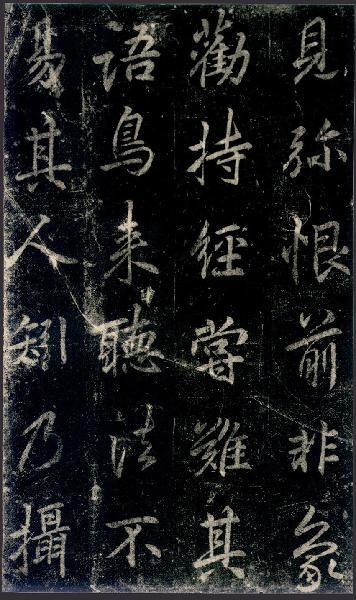 見弥恨前非象
勸持經嘗難其
語鳥来聽法不
易其人矧乃攝